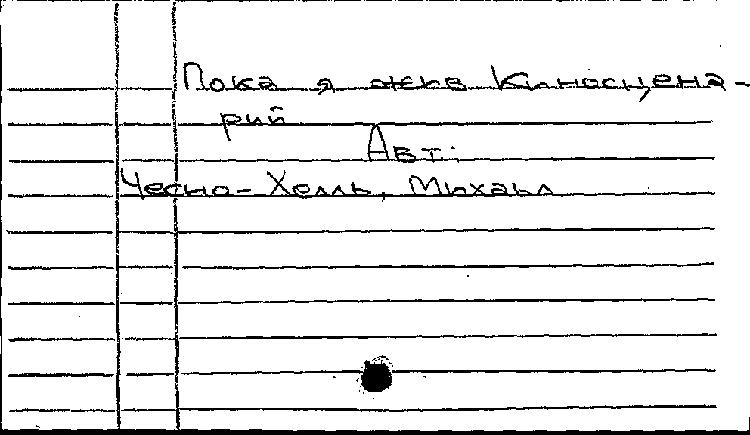 Пока я жив Киносцена-
рий
Авт.:
Чесно-Хелль, Михаьл